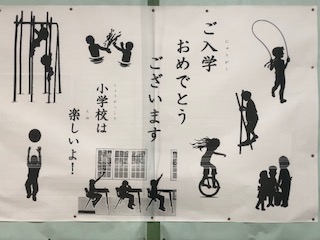 ご入学
おめでとう
ございます
小学校は
楽しいよ！